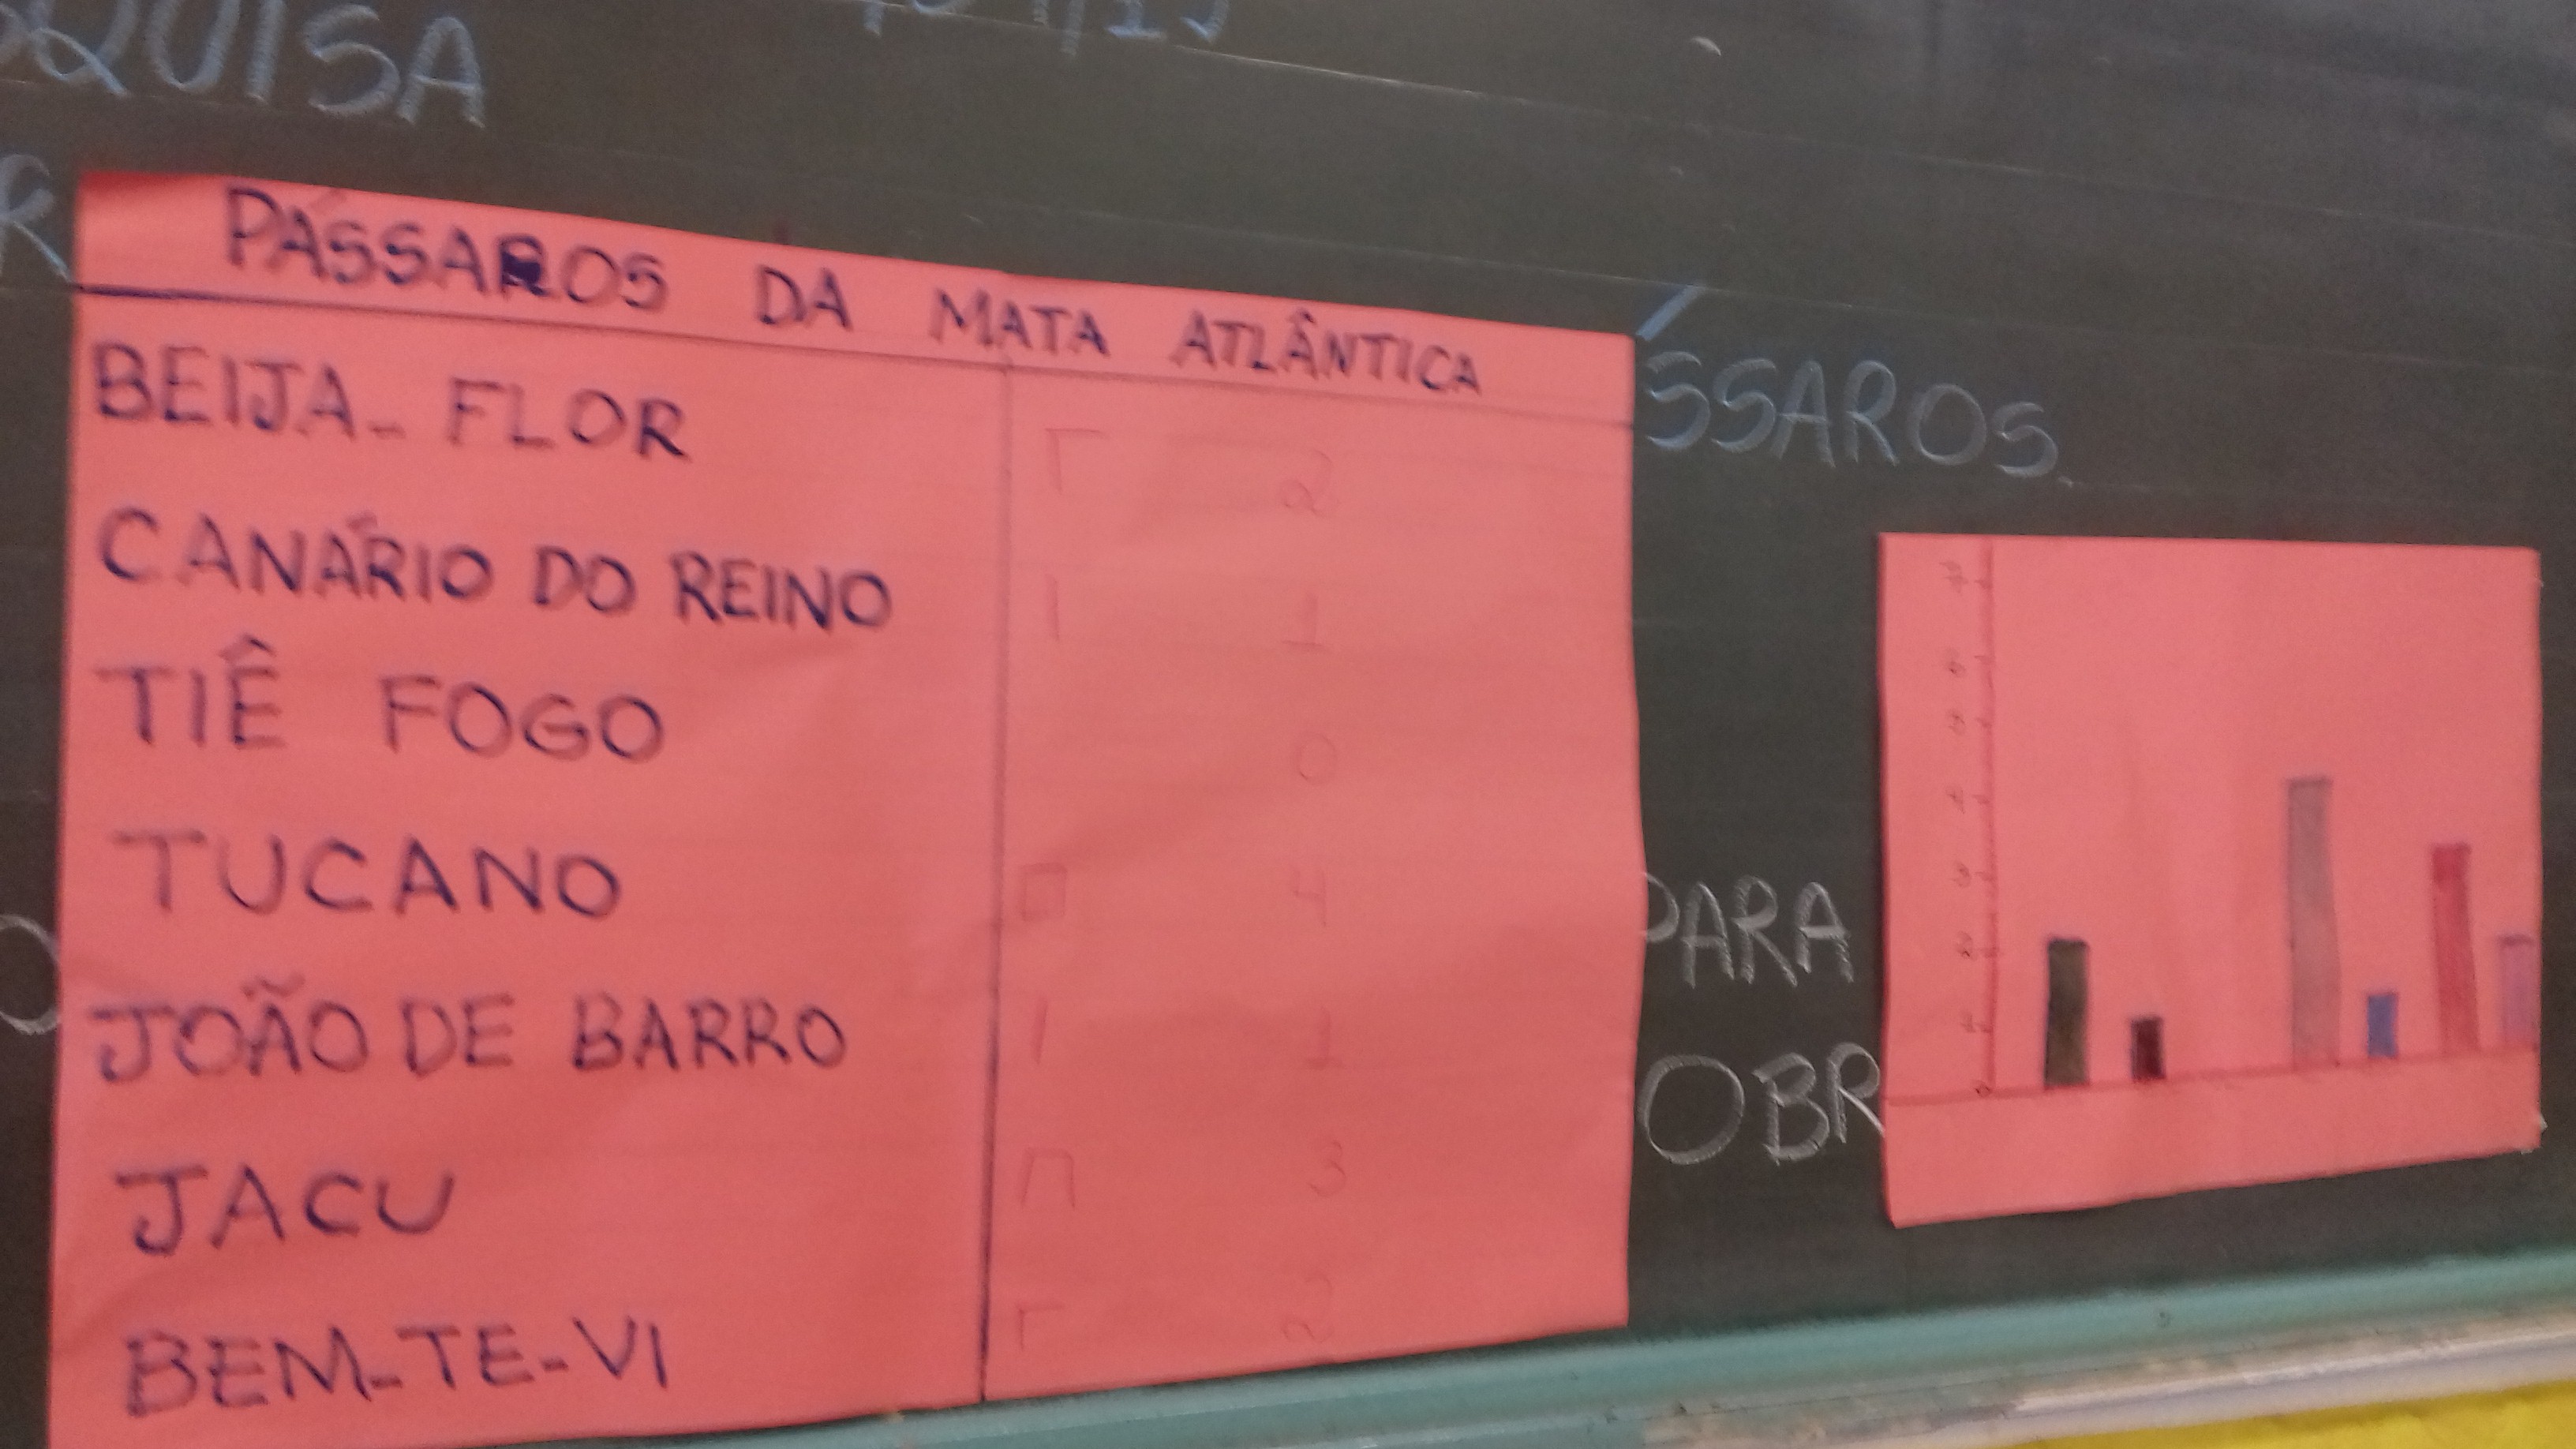 QUISA
R
PÁSSAROS DA MATA ATLÂNTICA
BEIJA-FLOR 2
CANÁRIO DO REINO 1
TIÊ FOGO 0
TUCANO 4
JOÃO DE BARRO 1
JACU 3
BEM-TE-VI 2
SSAROS
PARA
OBR